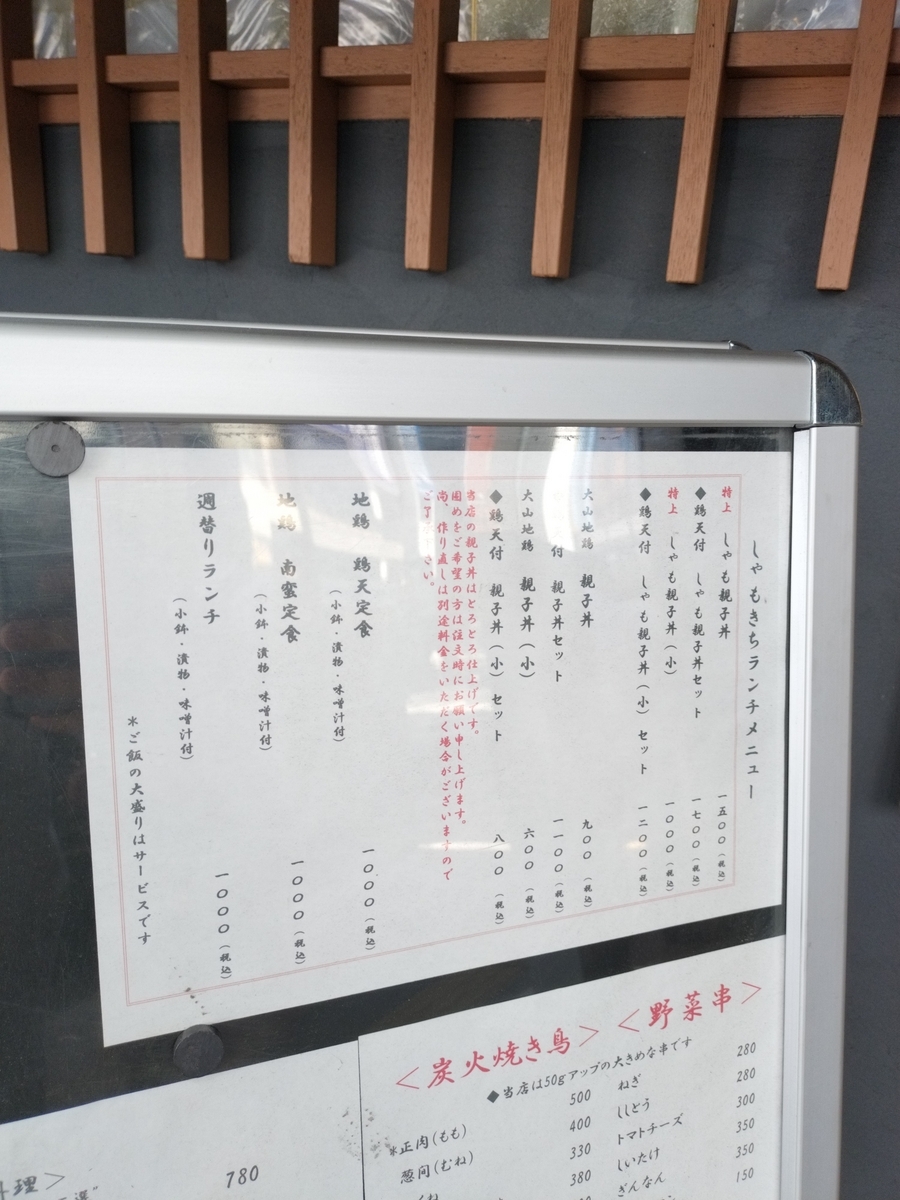 しゃもきちランチメニュー
特上 しゃも親子丼 一五〇〇(税込)
◆鶏天付 しゃも親子丼セット 一七〇〇(税込)
特上 しゃも親子丼(小) 一〇〇〇(税込)
◆鶏天付 しゃも親子丼(小)セット 一二〇〇(税込)
大山地鶏 親子丼 九〇〇(税込)
付 親子丼セット 一一〇〇(税込)
大山地鶏 親子丼(小) 六〇〇(税込)
◆鶏天付 親子丼(小)セット 八〇〇(税込)
当店の親子丼はとろとろ仕上げです。
固めをご希望の方は注文時にお願い申し上げます。
尚、作り直しは別途料金をいただく場合がございますので
ご了 さい。
地鶏 鶏天定食 一〇〇〇(税込)
(小鉢・漬物・味噌汁付)
地鶏 南蛮定食 一〇〇〇(税込)
(小鉢・漬物・味噌汁付)
週替りランチ 一〇〇〇(税込)
(小鉢・漬物・味噌汁付)
*ご飯の大盛りはサービスです
<炭火焼き鳥>
<野菜串>
◆当店は50gアップの大きめな串です
*正肉(もも) 500
葱間(むね) 400
330
380
ねぎ 280
ししとう 280
トマトチーズ 300
しいたけ 350
ぎんなん 350
150
理>
780